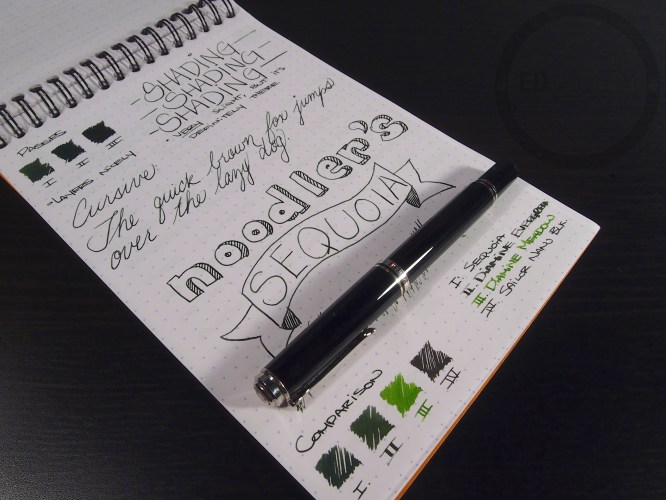 -SHADING-
-SHADING-
-SHADING-
• VERY SLIGHT, BUT IT'S
DEFINITELY THERE
PASSES
I II III
-LAYERS NICELY
Cursive:
The quick brown fox jumps
over the lazy dog.
noodler's
SEQUOIA
I: SEQUOIA
II: DIAMINE EVERGREEN
III: DIAMINE MEADOW
IV: SAILOR NANO BLK.
COMPARISON
I. II III IV